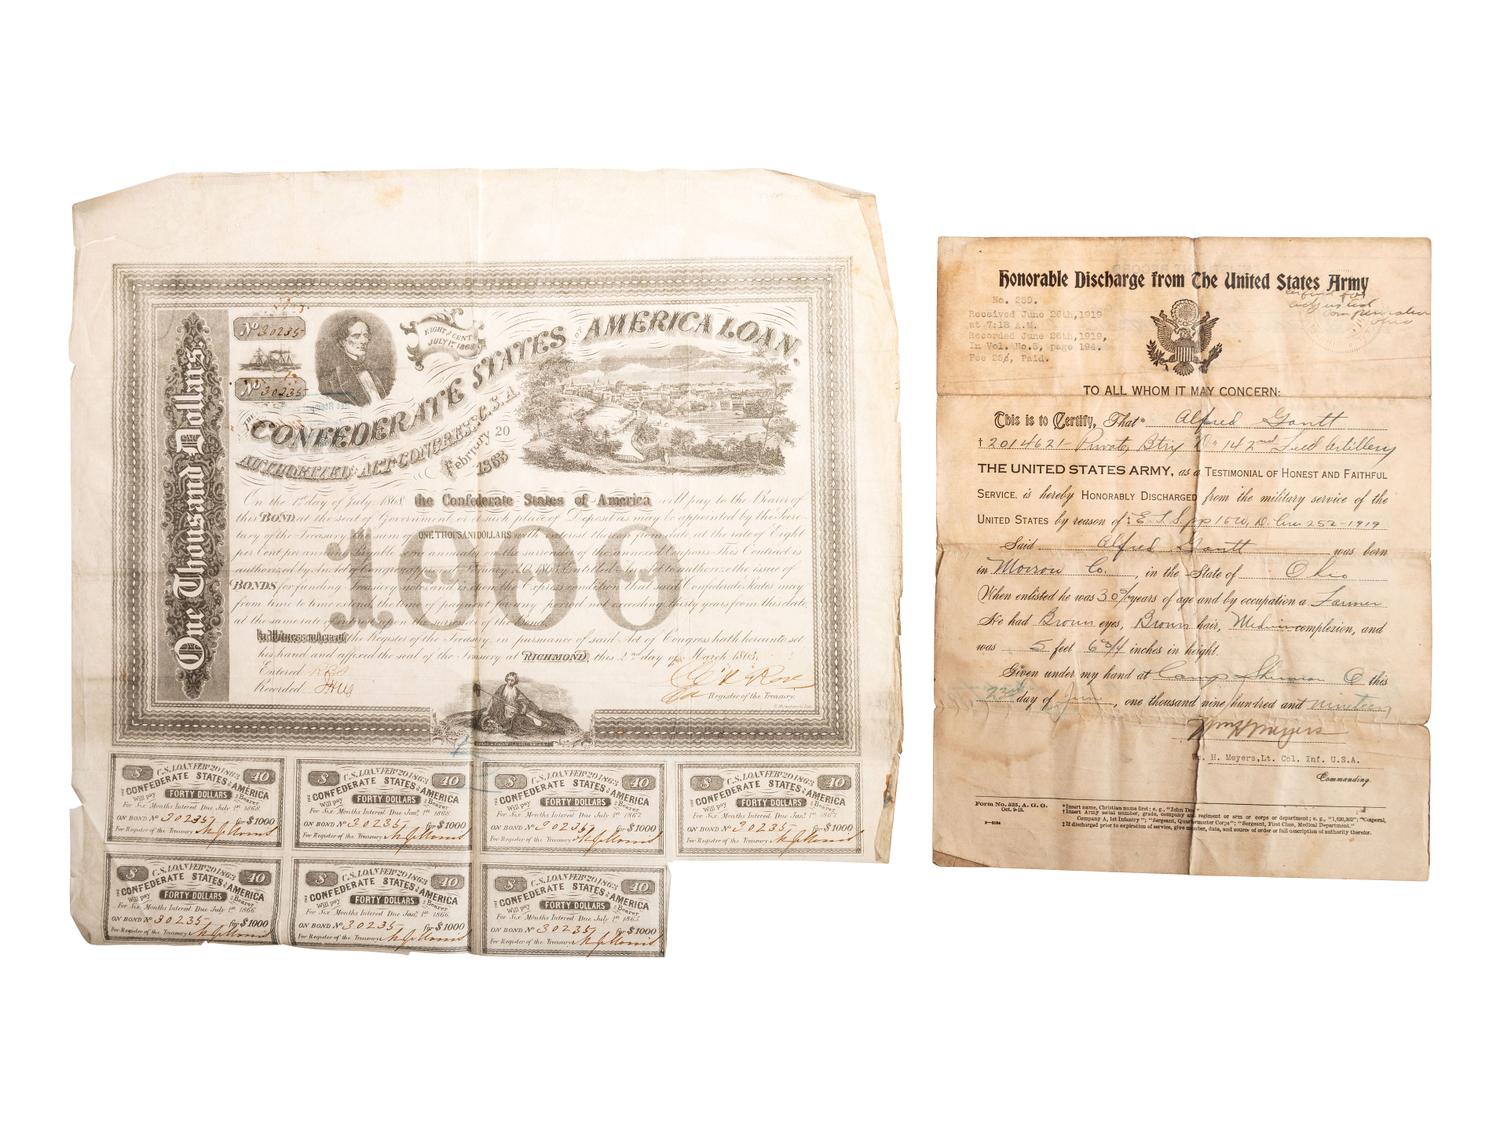 No 30235
No 30235
EIGHT P CENT
JULY 1st 1868
One Thousand Dollars
THE CONFEDERATE STATES OF AMERICA LOAN.
AUTHORIZED BY ACT OF CONGRESS, C.S.A.
February 20
1863
On the 1st day of July 1868 the Confederate States of America will pay to the Bearer of
this BOND at the seat of Government or at such place of Deposit as may be appointed by the Secre
tary of the Treasury the sum of ONE THOUSAND DOLLARS with interest thereon from date at the rate of Eight
per Cent per annum payable semi annually on the surrender of the annexed Coupons This Contract is
authorized by an Act of Congress approved February 20, 1863, Entitled "An Act to authorize the issue of
BONDS for funding Treasury notes" and is upon the express condition that said Confederate States may
from time to time extend the time of payment for any period not exceeding thirty years from this date,
at the same rate of interest
1000
In Witness whereof the Register of the Treasury, in pursuance of said Act of Congress hath hereunto set
his hand and affixed the seal of the Treasury at RICHMOND, this 2nd day of March 1863.
Entered
Recorded
Register of the Treasury.
8 C.S. LOAN FEBY 20 1863 40
THE CONFEDERATE STATES OF AMERICA
Will pay FORTY DOLLARS to Bearer
For Six Months Interest Due July 1st 1868
ON BOND No 30235 for $1000
For Register of the Treasury
8 C.S. LOAN FEBY 20 1863 40
THE CONFEDERATE STATES OF AMERICA
Will pay FORTY DOLLARS to Bearer
For Six Months Interest Due Jany 1st 1868
ON BOND No 30235 for $1000
For Register of the Treasury
8 C.S. LOAN FEBY 20 1863 40
THE CONFEDERATE STATES OF AMERICA
Will pay FORTY DOLLARS to Bearer
For Six Months Interest Due July 1st 1867
ON BOND No 30235 for $1000
For Register of the Treasury
8 C.S. LOAN FEBY 20 1863 40
THE CONFEDERATE STATES OF AMERICA
Will pay FORTY DOLLARS to Bearer
For Six Months Interest Due Jany 1st 1867
ON BOND No 30235 for $1000
For Register of the Treasury
8 C.S. LOAN FEBY 20 1863 40
THE CONFEDERATE STATES OF AMERICA
Will pay FORTY DOLLARS to Bearer
For Six Months Interest Due July 1st 1866
ON BOND No 30235 for $1000
For Register of the Treasury
8 C.S. LOAN FEBY 20 1863 40
THE CONFEDERATE STATES OF AMERICA
Will pay FORTY DOLLARS to Bearer
For Six Months Interest Due Jany 1st 1866
ON BOND No 30235 for $1000
For Register of the Treasury
8 C.S. LOAN FEBY 20 1863 40
THE CONFEDERATE STATES OF AMERICA
Will pay FORTY DOLLARS to Bearer
For Six Months Interest Due July 1st 1865
ON BOND No 30235 for $1000
For Register of the Treasury
Honorable Discharge from The United States Army
No. 259.
Received June 26th, 1919
at 7:15 A.M.
Recorded June 28th, 1919,
In Vol. No. 5, page 194.
Fee 25¢, Paid.
adjusted
compensation
Ohio
TO ALL WHOM IT MAY CONCERN:
This is to Certify, That* Alfred Gantt
† 2014621- Private, Btry 142nd Field Artillery
THE UNITED STATES ARMY, as a TESTIMONIAL OF HONEST AND FAITHFUL
SERVICE, is hereby HONORABLY DISCHARGED from the military service of the
UNITED STATES by reason of ‡ E.T.S. pp 16 W.D. Cir 252-1919
Said Alfred Gantt was born
in Morrow Co., in the State of Ohio
When enlisted he was 30 years of age and by occupation a Farmer
He had Brown eyes, Brown hair, Medium complexion, and
was 5 feet 6 3/4 inches in height.
Given under my hand at Camp Sherman O this
23rd day of June, one thousand nine hundred and nineteen
Wm H Meyers
Wm. H. Meyers, Lt. Col. Inf. U.S.A.
Commanding.
Form No. 525, A. G. O.
Oct. 9-18.
*Insert name, Christian name first; e. g., "John Doe"
†Insert Army serial number, grade, company and regiment or arm or corps or department; e. g., "1,620,302"; "Corporal,
Company A, 1st Infantry"; "Sergeant, Quartermaster Corps"; "Sergeant, First Class, Medical Department."
‡If discharged prior to expiration of service, give number, date, and source of order or full description of authority therefor.